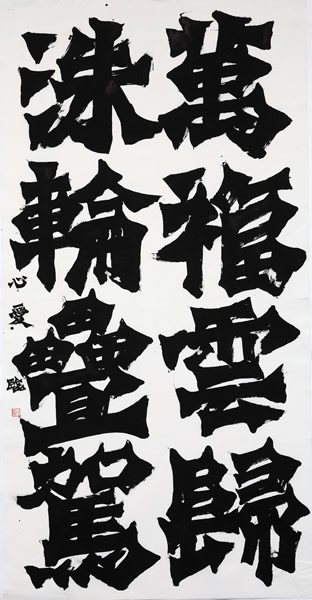 萬福雲歸
洙輪疊駕
心愛臨